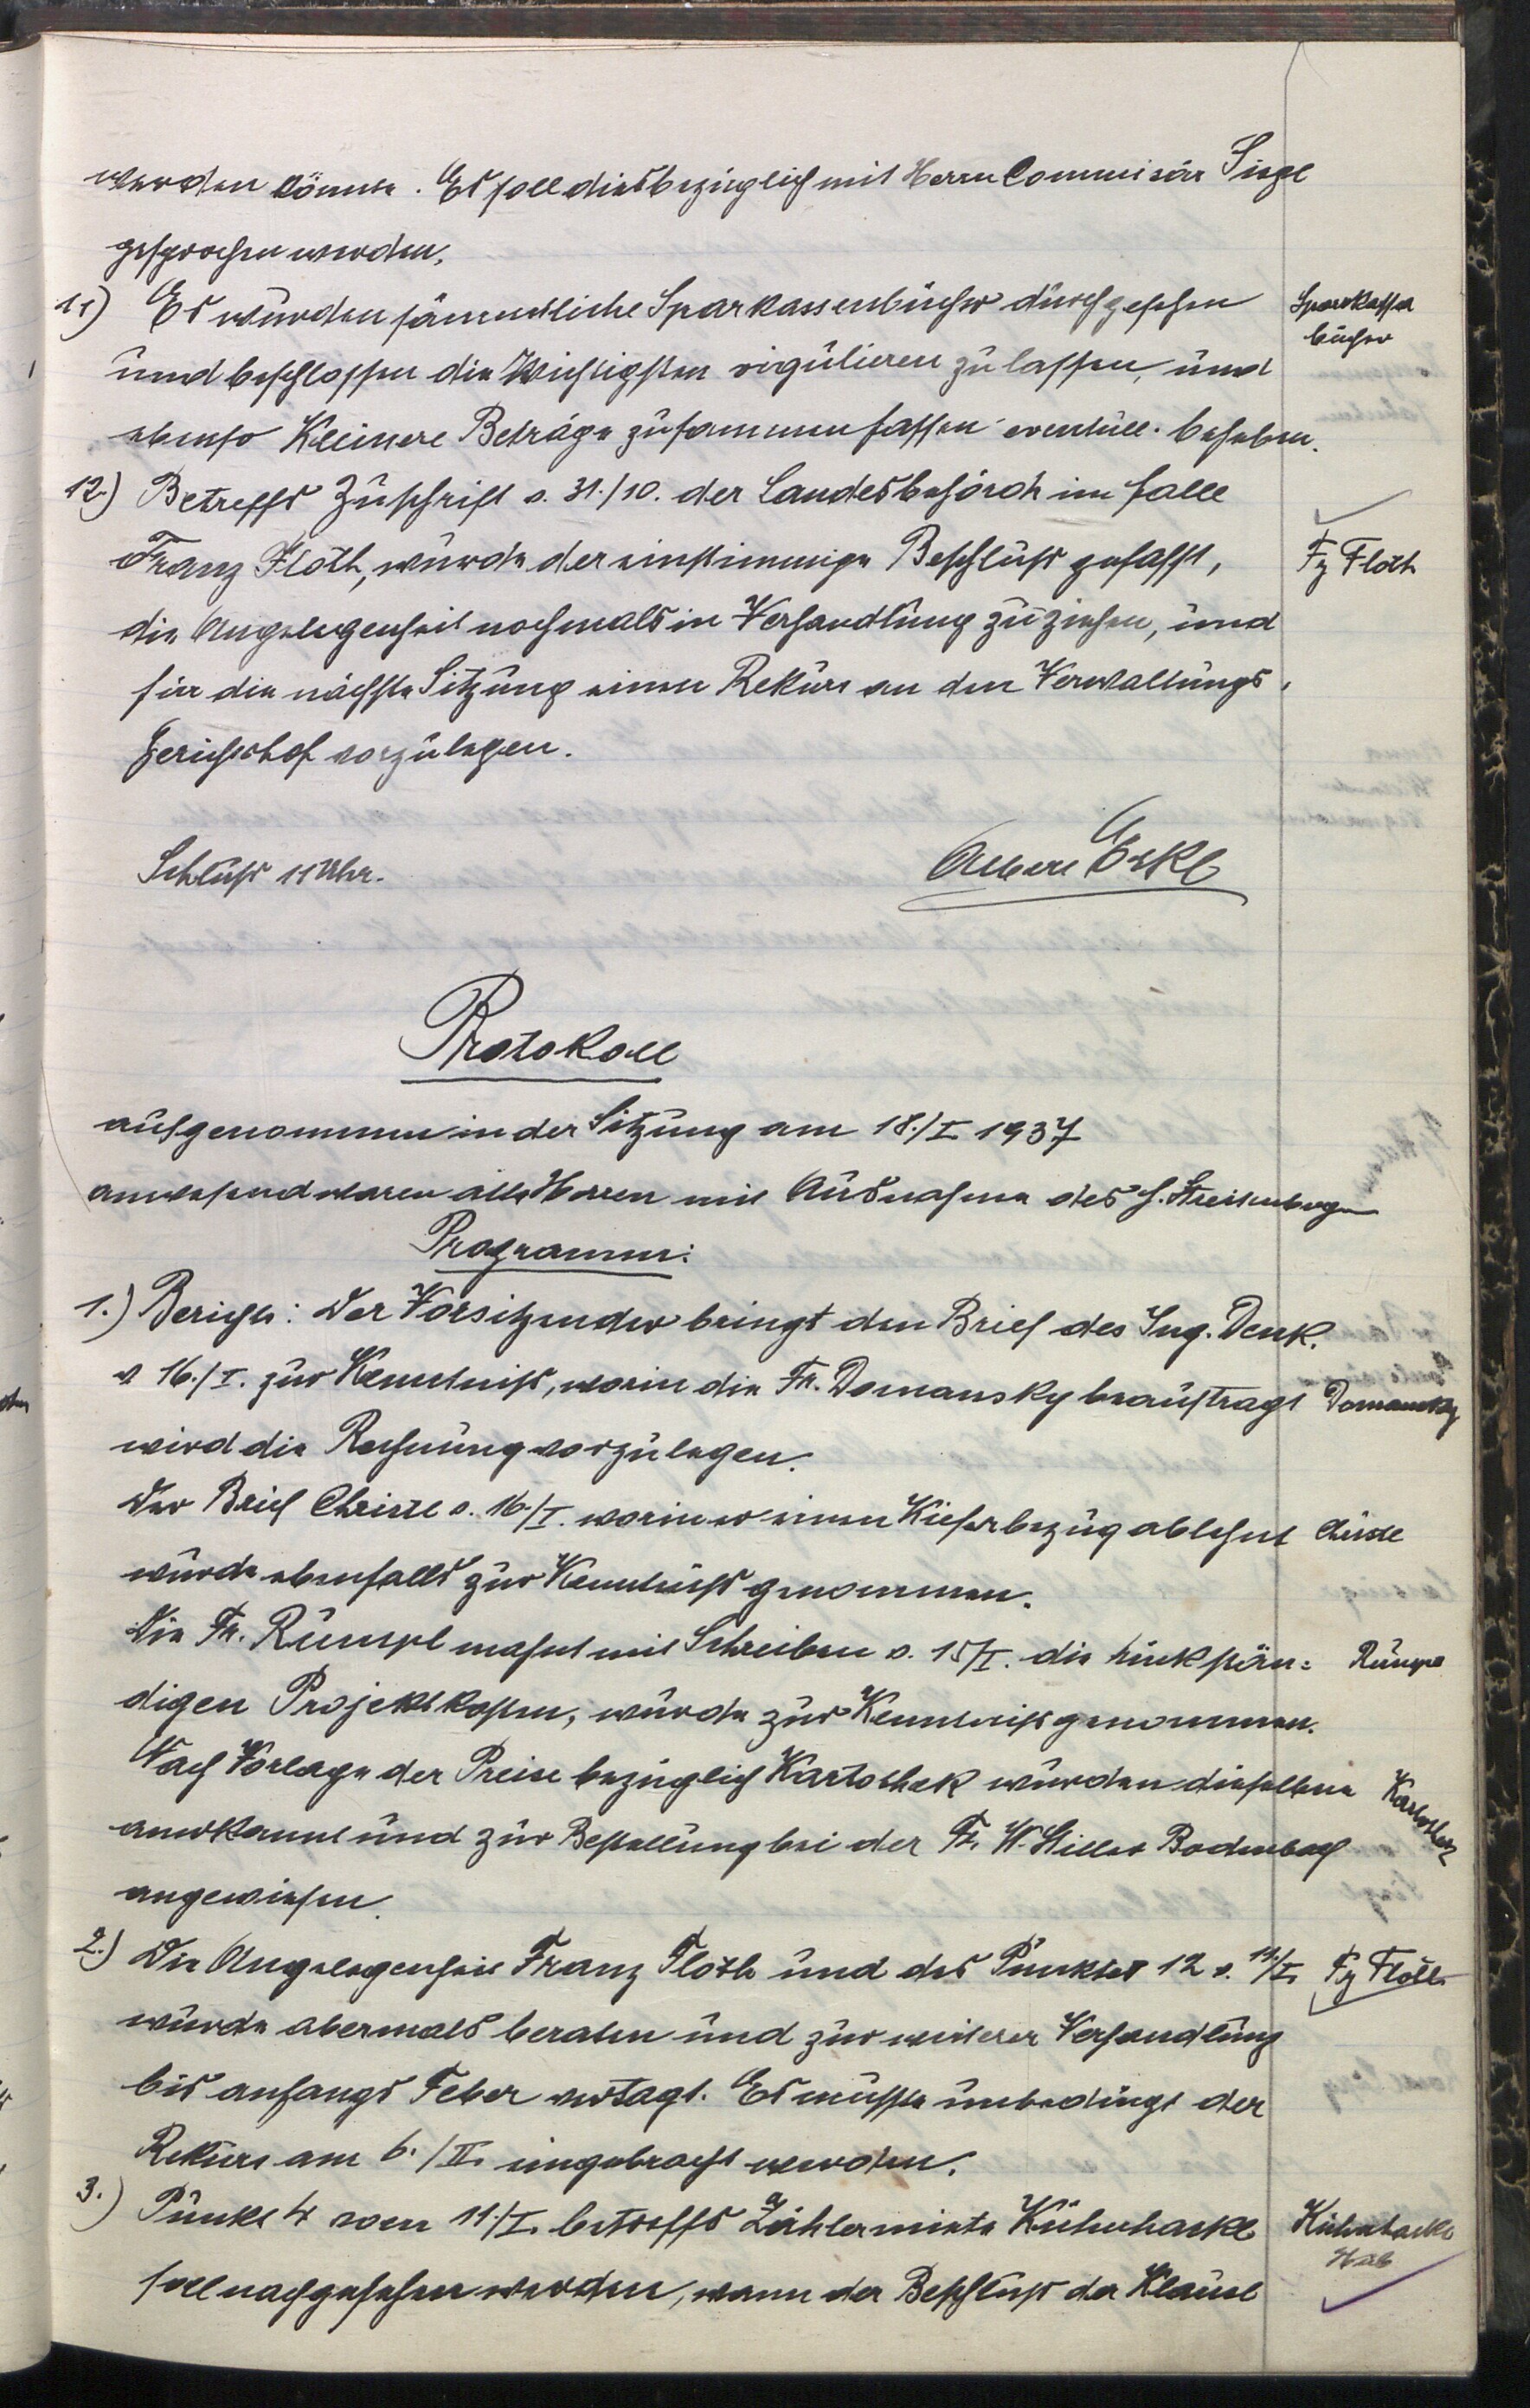 werden könne. Es soll diesbezüglich mit Herrn Commisär Siegl
gesprochen werden.
11) Es wurden sämmtliche Sparkassenbücher durchgesehen
Sparkassa
bücher
und beschlossen die Wichtigsten vigulieren zu lassen, und
ebenso Kleinere Beträge zusammenfassen eventuell. beheben.
12.) Betreffs Zuschrift v. 31./10. der Landesbehörde im Falle
Franz Floth, wurde der einstimmige Beschluss gefasst,
Fz Floth
die Angelegenheit nochmals in Verhandlung zu ziehen, und
für die nächste Sitzung einen Rekurs an den Verwaltungs-
Gerichtshof vorzulegen.
Schluss 11 Uhr.
Protokoll
aufgenommen in der Sitzung am 18./I. 1937
anwesend waren alle Herren mit Ausnahme des H. Streitenberger
Programm:
1.) Bericht: Der Vorsitzender bringt den Brief des Ing. Denk.
v 16./I. zur Kenntniss, worin die Fa. Domansky beauftragt
Domansky
wird die Rechnung vorzulegen.
Der Brief Christl v. 16./I. worin er einen Kieferbezug ablehnt
Christl
wurde ebenfalls zur Kenntniss genommen.
Die Fa. Rumpl mahnt mit Schreiben v. 15/I. die rückstän=
Rumpl
digen Projektkosten, wurde zur Kenntniss genommen.
Nach Vorlage der Preise bezüglich Kartothek wurden dieselben
Kartothek
anerkannt und zur Bestellung bei der Fa. W. Stiller Bodenbach
angewiesen.
2.) Die Angelegenheit Franz Floth und des Punktes 12 v. 11./I.
Fz Floth
wurde abermals beraten und zur weiterer Verhandlung
bis anfangs Feber vertagt. Es müsste unbedingt der
Rekurs am 6./II. eingebracht werden.
3.) Punkt 4 vom 11./I. betreffs Zählermiete Kühnhackl
Kühnhackl
soll nachgesehen werden, wann der Beschluss der Klausl